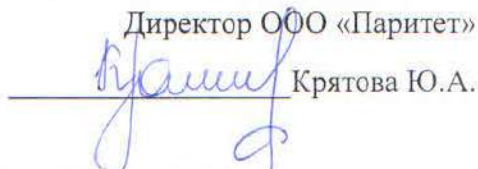 Директор ООО «Паритет»
Крятова Ю.А.